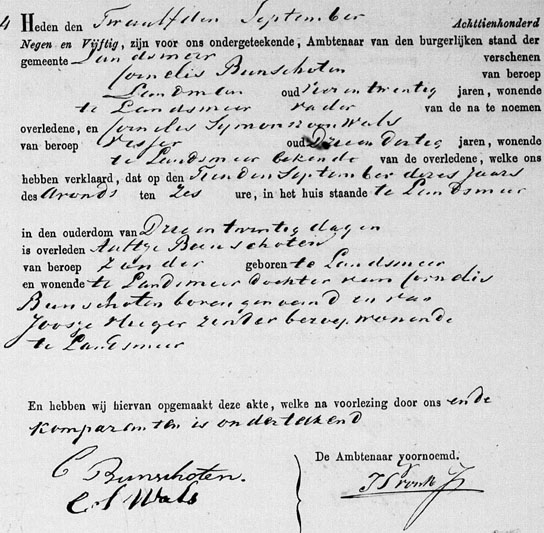 4 Heden den Twaalfden September Achttienhonderd
Negen en Vijftig, zijn voor ons ondergeteekende, Ambtenaar van den burgerlijken stand der
gemeente Landsmeer verschenen
Cornelis Bunschoten van beroep
Landman oud twentig jaren, wonende
te Landsmeer vader van de na te noemen
overledene, en Cornelis Symonszoon Wals
van beroep oud Drieen dertig jaren, wonende
te Landsmeer bekende van de overledene, welke ons
hebben verklaard, dat op den Tienden September dezes jaars
des Avonds ten Zes ure, in het huis staande te Landsmeer
in den ouderdom van Drieentwintig dagen
is overleden Aaltje Bunschoten
van beroep Zonder geboren te Landsmeer
en wonende te Landsmeer dochter van Cornelis
Bunschoten bovengenoemd en van
Zonder beroep wonende
te Landsmeer
En hebben wij hiervan opgemaakt deze akte, welke na voorlezing door ons ende
komparanten is ondertekend
De Ambtenaar voornoemd.
C Bunschoten.
C S Wals